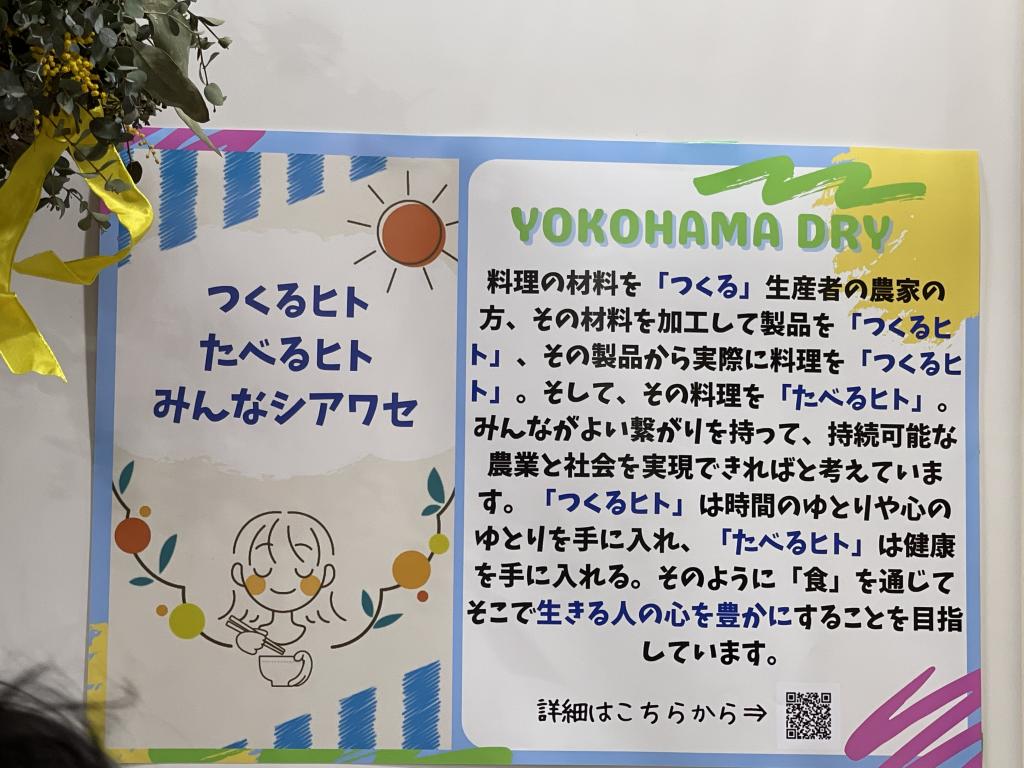 つくるヒト
たべるヒト
みんなシアワセ
YOKOHAMA DRY
料理の材料を「つくる」生産者の農家の
方、その材料を加工して製品を「つくるヒ
ト」、その製品から実際に料理を「つくるヒ
ト」。そして、その料理を「たべるヒト」。
みんながよい繋がりを持って、持続可能な
農業と社会を実現できればと考えていま
す。「つくるヒト」は時間のゆとりや心の
ゆとりを手に入れ、「たべるヒト」は健康
を手に入れる。そのように「食」を通じて
そこで生きる人の心を豊かにすることを目指
しています。
詳細はこちらから⇒